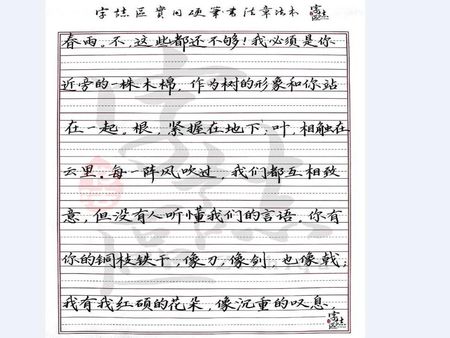 實用硬筆书法章法本
春雨。不,这些都还不够!我必须是你
近旁的一株木棉,作为树的形象和你站
在一起。根,紧握在地下;叶,相触在
云里。每一阵风吹过,我们都互相致
意,但没有人听懂我们的言语。你有
你的铜枝铁干,像刀,像剑,也像戟;
我有我红硕的花朵,像沉重的叹息,